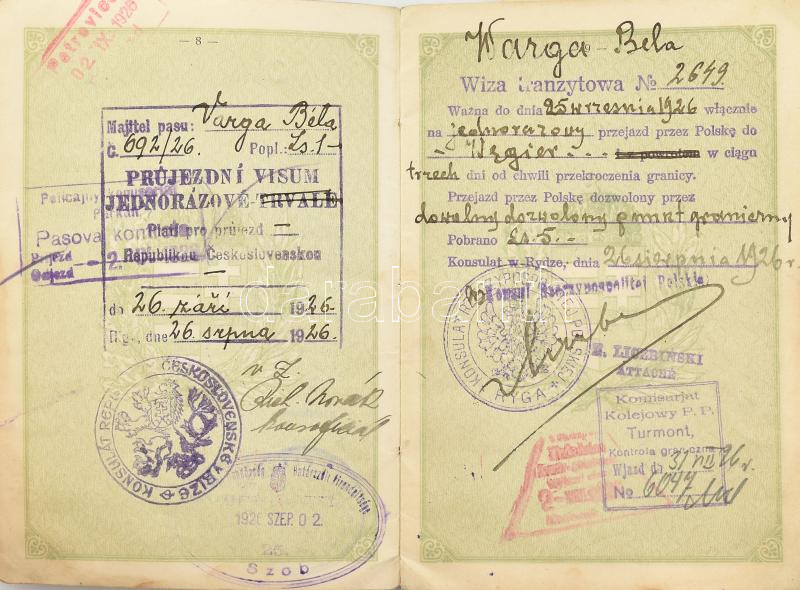 Petrovice
02 IX 1926
— 8 —
Majitel pasu: Varga Béla
Č. 692/26. Popl.: Ls. 1-
PRŮJEZDNÍ VISUM
JEDNORÁZOVÉ-TRVALÉ
Platí pro průjezd —
Republikou Československou
—
do 26. září 1926.
Riga, dne 26. srpna 1926.
Pasová kontrola
Příjezd
Odjezd - 2.
v Z.
Novák
KONSULÁT REPUBLIKY ČESKOSLOVENSKÉ V RIZE
1926 SZEP. 02.
25.
Szob
Warga - Bela
Wiza tranzytowa № 2649.
Ważna do dnia 25 września 1926 włącznie
na jednorazowy przejazd przez Polskę do
- Węgier - - - i z powrotem w ciągu
trzech dni od chwili przekroczenia granicy.
Przejazd przez Polskę dozwolony przez
dowolny dozwolony punkt graniczny
Pobrano Ls. 5.-
Konsulat w Rydze, dnia 26 sierpnia 1926 r.
Konsul Rzeczypospolitej Polskiej
KONSULAT RZECZYPOSPOLITEJ POLSKIEJ
RYGA
E. LICZBIŃSKI
ATTACHÉ
Komisarjat
Kolejowy P. P.
Turmont,
Kontrola graniczna
Wjazd dn. 31/VIII 26 r.
№ 6044
darabanth